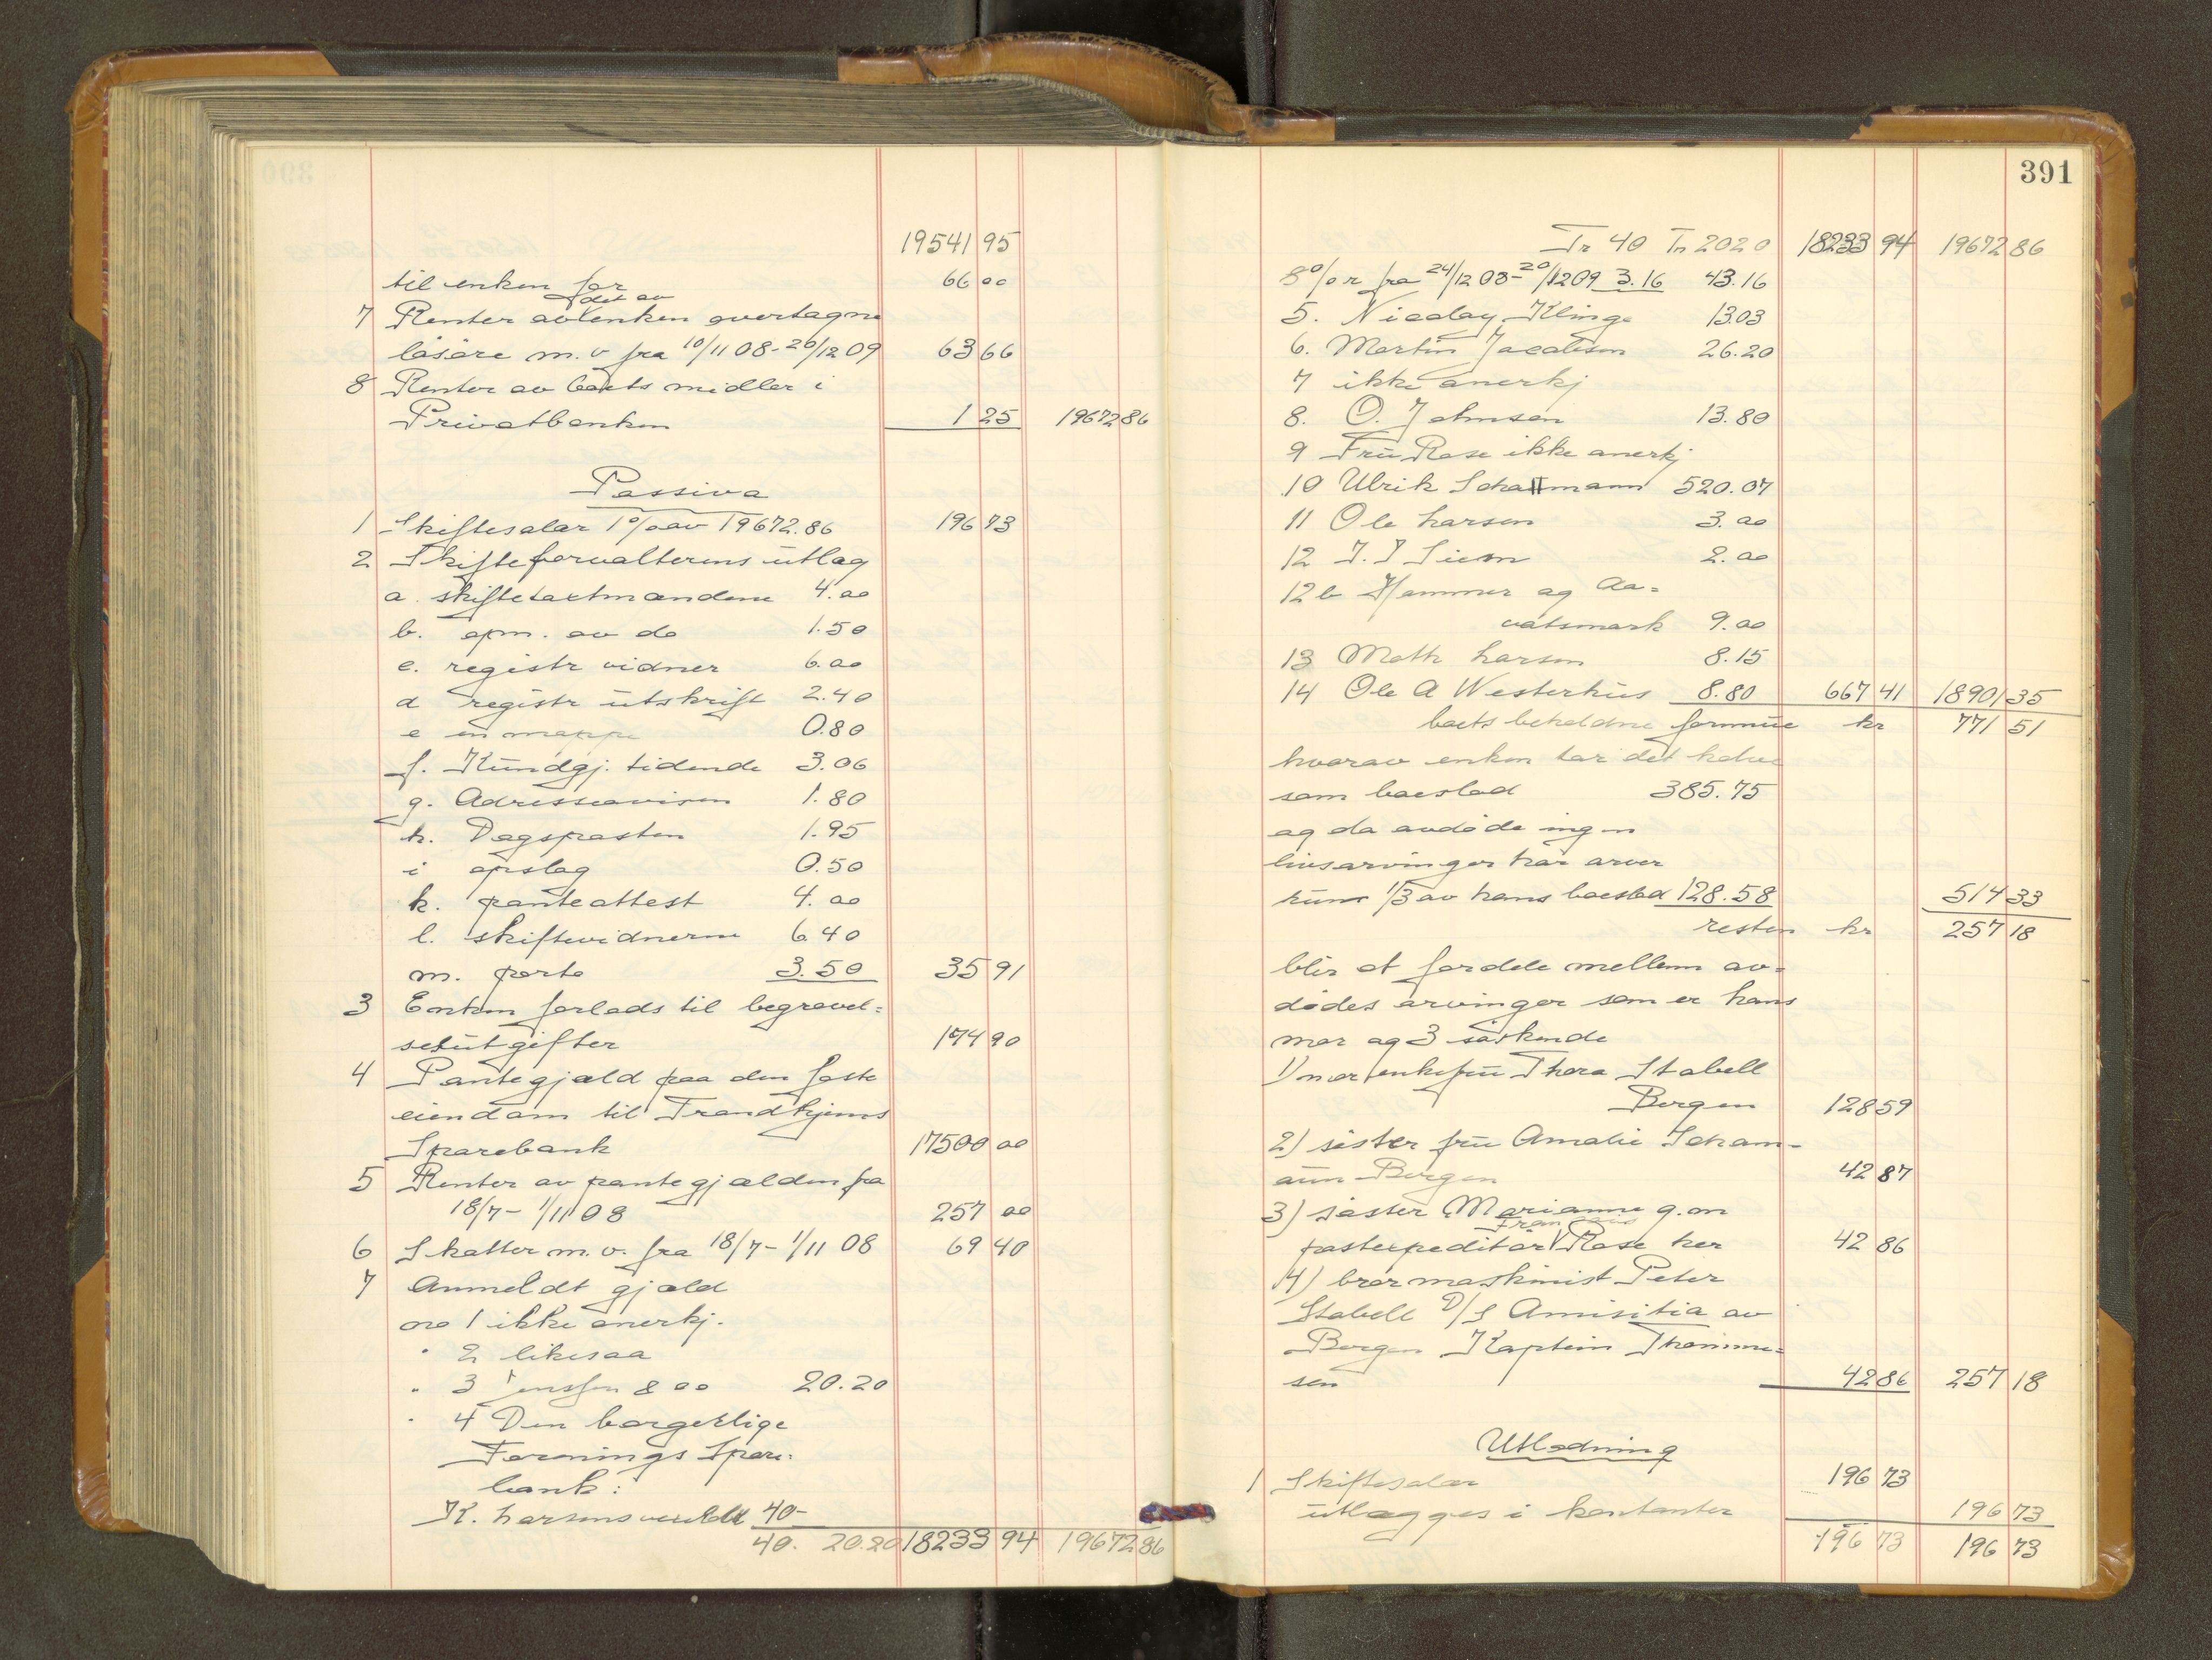 19541 95
til enken for 66 00
det av
7 Renter av enken overtagne
løsøre m. v fra 10/11 08-20/12 09 63 66
8 Renter av boets midler i
Privatbanken 1 25 19672 86
Passiva
1 Skiftesalær 1 % av 19672.86 196 73
2 Skifteforvalterens utlæg
a. skiftetaxtmændene 4.00
b. opn. av do 1.50
c. registr vidner 6.00
d registr utskrift 2.40
e en mappe 0.80
f. Kundgj. tidende 3.06
g. Adresseavisen 1.80
h. Dagsposten 1.95
i opslag 0.50
k. panteattest 4.00
l. skiftevidnerne 6.40
m. porto 3.50 35 91
3 Enken forlods til begravel=
sesutgifter 174 90
4 Pantegjæld paa den faste
eiendom til Trondhjems
Sparebank 17500 00
5 Renter av pantegjælden fra
18/7 - 1/11 08 257 00
6 Skatter m. v. fra 18/7 - 1/11 08 69 40
7 Anmeldt gjæld
no 1 ikke anerkj.
" 2 likesaa
" 3 Jenssen & Co 20.20
" 4 Den borgerlige
Forenings Spare=
bank:
K. Larsens 40-
40. 20.20 18233 94 19672 86
391
Tr 40 Tr 20 20 18233 94 19672 86
8 % r fra 24/12 08-20/12 09 3.16 43.16
5. Nicolay Klinge 13.03
6. Martin Jacobsen 26.20
7 ikke anerkj
8. O. Johnsen 13.80
9 Fru Rose ikke anerkj
10 Ulrik Schammann 520.07
11 Ole Larsen 3.00
12 J. J Siem 2.00
12 b Hammer og Aa=
vatsmark 9.00
13 Math Larsen 8.15
14 Ole A Westerhus 8.80 667 41 18901 35
boets beholdne formue kr 771 51
hvorav enken tar det halve
som boeslod 385.75
og da avdøde ingen
livsarvinger har arver
hun 1/3 av hans boeslod 128.58 514 33
resten kr 257 18
blir at fordele mellem av=
dødes arvinger som er hans
mor og 3 søskende
1) mor enkefru Thora Stabell
Bergen 128 59
2) søster fru Amalie Scham-
ann Bergen 42 87
3) søster Marianne g. m
Francois
postexpeditør Rose her 42 86
4) bror maskinist Peter
Stabell D/S Amisitia av
Bergen Kaptein Thomme=
sen 42 86 257 18
Utlodning
1 Skiftesalær 196 73
utlægges i kontanter 196 73
196 73 196 73